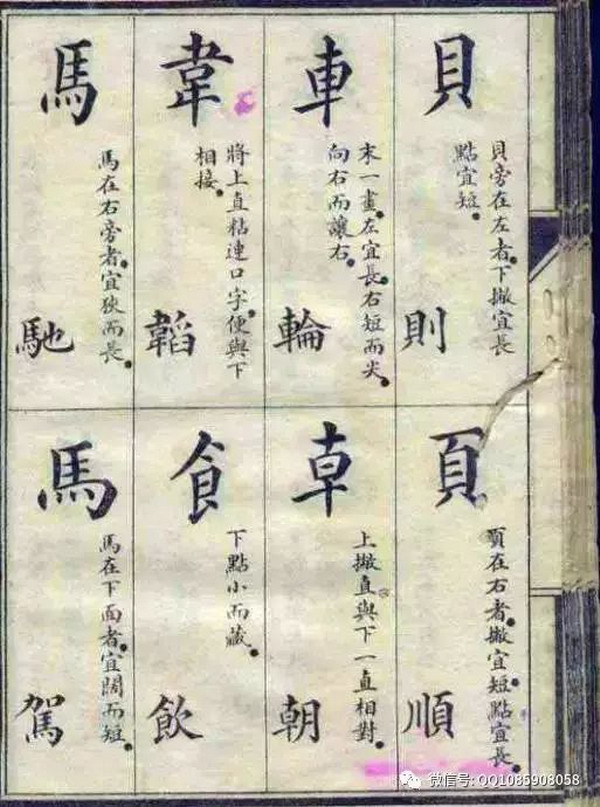 貝
貝旁在左者。下撇宜長
點宜短。
則
車
末一畫。左宜長。右短而尖。
向右而讓右。
輪
韋
將上直粘連口字。便與下
相接。
韜
馬
馬在右旁者。宜狹而長。
馳
頁
頁在右者。撇宜短。點宜長。
順
卓
上撇直與下一直相對。
朝
食
下點小而藏。
飲
馬
馬在下面者。宜闊而短。
駕
微信号: QQ1085908058